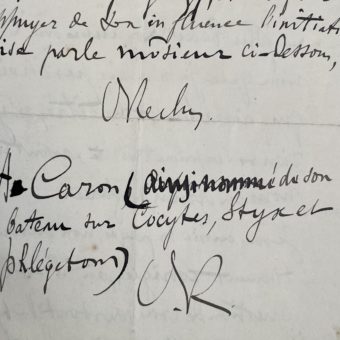 ppuyer de son influence l'initiati
ise par le mosieur ci-dessous,
A Caron (ainsi nommé du son
bateau sur Cocytes, Styx et
phlégeton)